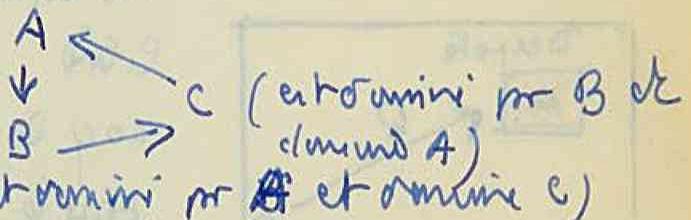 A
C (est dominé pr B et
B domine A)
t dominé pr A et domine C)